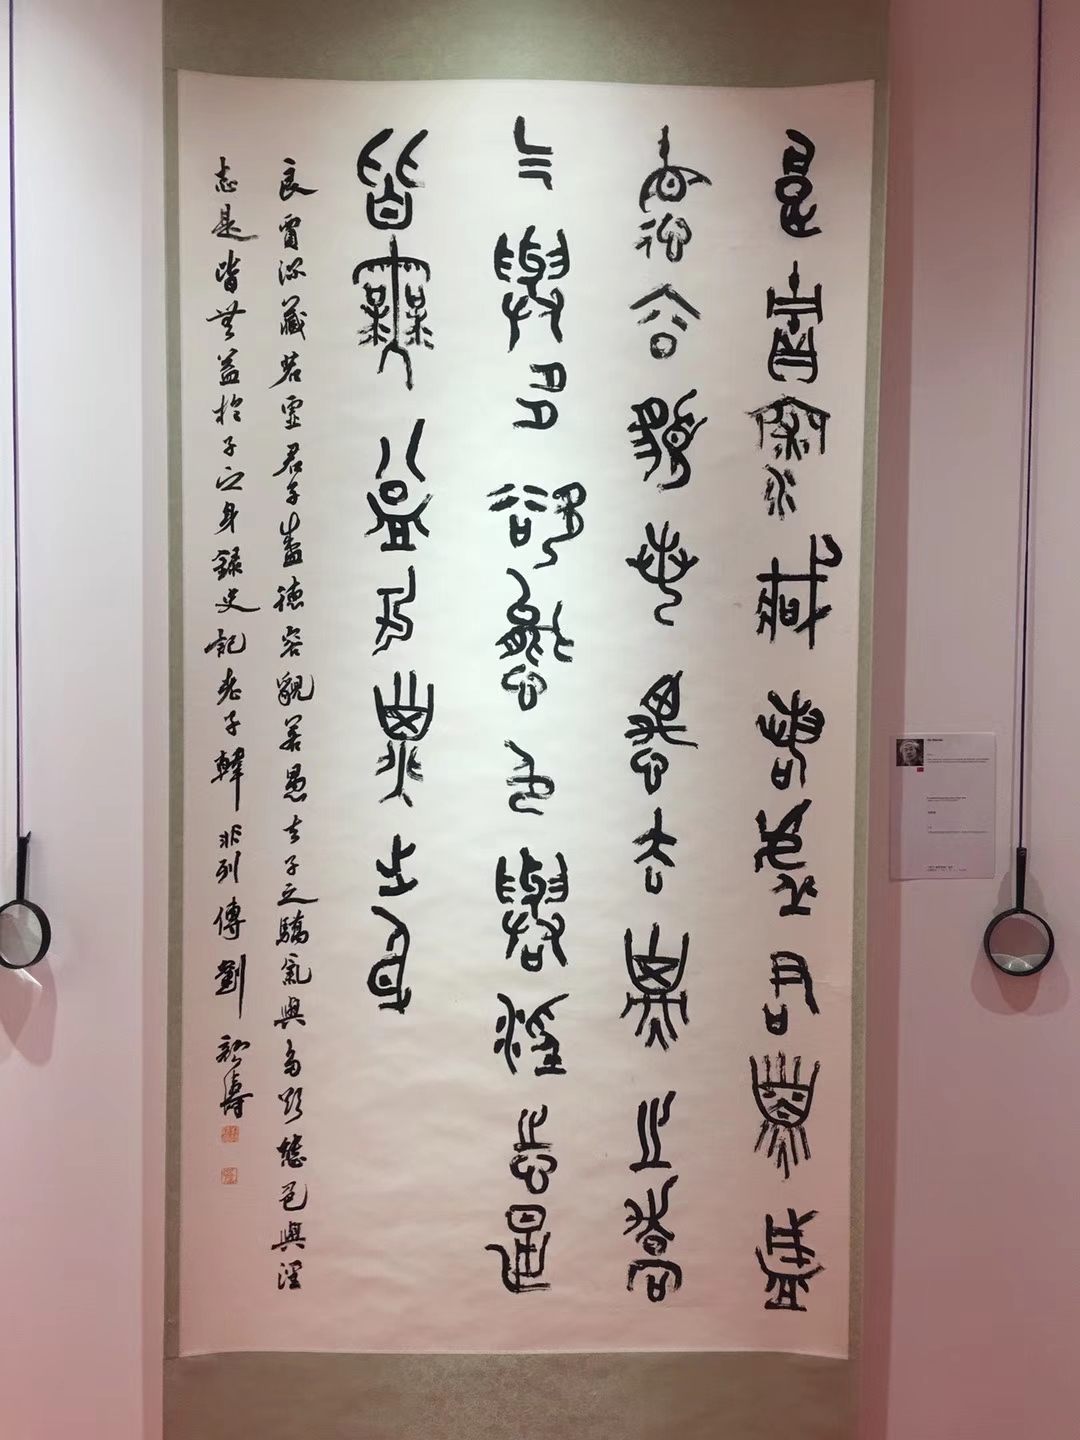 良賈深藏若虛君子盛
德容貌若愚去子之驕
气與多欲態色與淫志是
皆無益於子之身
良賈深藏若虛君子盛德容貌若愚去子之驕氣與多欲態色與淫
志是皆無益於子之身錄史記老子韓非列傳劉